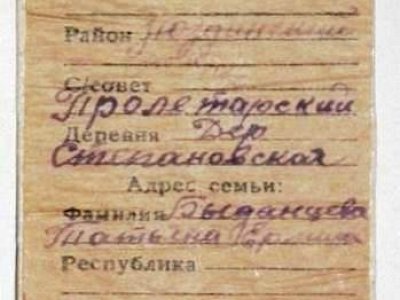 Район
С/совет
Пролетарский
Деревня Дер
Степановская
Адрес семьи:
Фамилия Быданцева
Татьяна
Республика